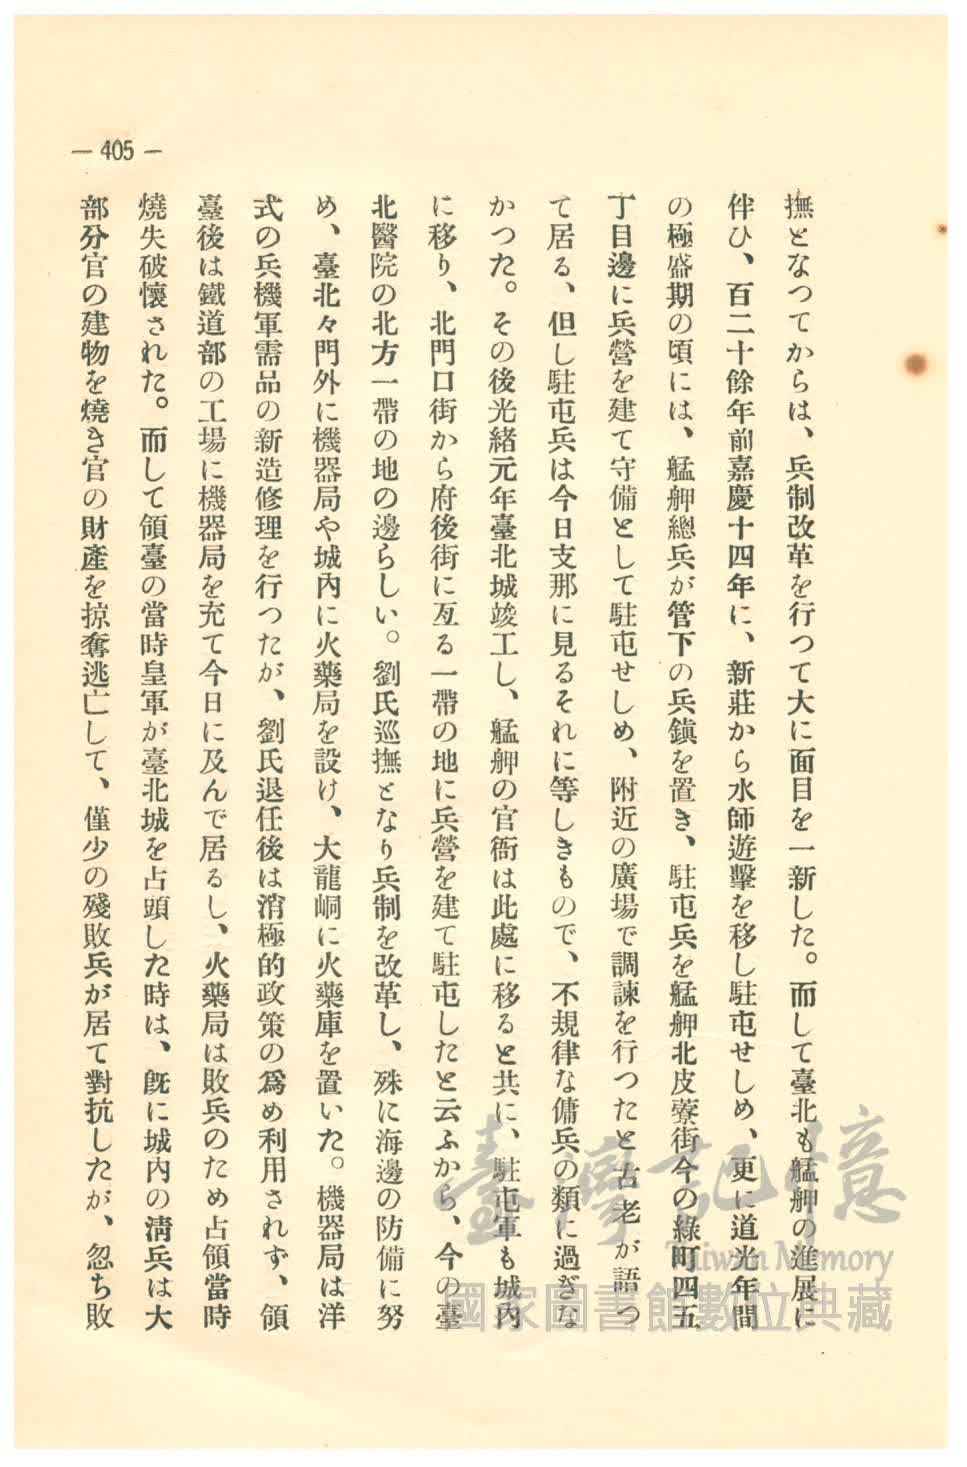 — 405 —
撫となつてからは、兵制改革を行つて大に面目を一新した。而して臺北も艋舺の進展に
伴ひ、百二十餘年前嘉慶十四年に、新莊から水師遊擊を移し駐屯せしめ、更に道光年間
の極盛期の頃には、艋舺總兵が管下の兵鎭を置き、駐屯兵を艋舺北皮藔街今の綠町四五
丁目邊に兵營を建て守備として駐屯せしめ、附近の廣場で調諫を行つたと古老が語つ
て居る、但し駐屯兵は今日支那に見るそれに等しきもので、不規律な傭兵の類に過ぎな
かつた。その後光緒元年臺北城竣工し、艋舺の官衙は此處に移ると共に、駐屯軍も城內
に移り、北門口街から府後街に亙る一帶の地に兵營を建て駐屯したと云ふから、今の臺
北醫院の北方一帶の地の邊らしい。劉氏巡撫となり兵制を改革し、殊に海邊の防備に努
め、臺北々門外に機器局や城內に火藥局を設け、大龍峒に火藥庫を置いた。機器局は洋
式の兵機軍需品の新造修理を行つたが、劉氏退任後は消極的政策の爲め利用されず、領
臺後は鐵道部の工場に機器局を充て今日に及んで居るし、火藥局は敗兵のため占領當時
燒失破懷された。而して領臺の當時皇軍が臺北城を占頭した時は、旣に城內の淸兵は大
部分官の建物を燒き官の財產を掠奪逃亡して、僅少の殘敗兵が居て對抗したが、忽ち敗
臺灣記憶
Taiwan Memory
國家圖書館數位典藏